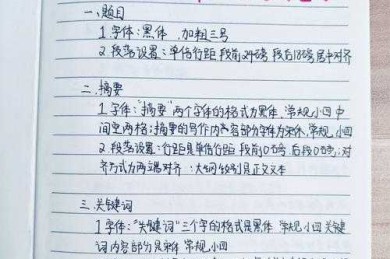 一、题目
1.字体：黑体 加粗 三号
2.段落设置：单倍行距 段前24磅 段后18磅 居中对齐
二、摘要
1.字体："摘要"两个字体的格式为黑体、常规、小四 中
间空两格；摘要的写作内容部分字体为宋体、常规、小四
2.段落设置：行距是单倍行距 段前0磅 后段0磅；对
齐方式为两端对齐：大纲级别是正文文本
三、关键词
1.字体："关键词"三个字的格式是黑体 常规、小四 关键
词内容部分是宋体、常规、小四